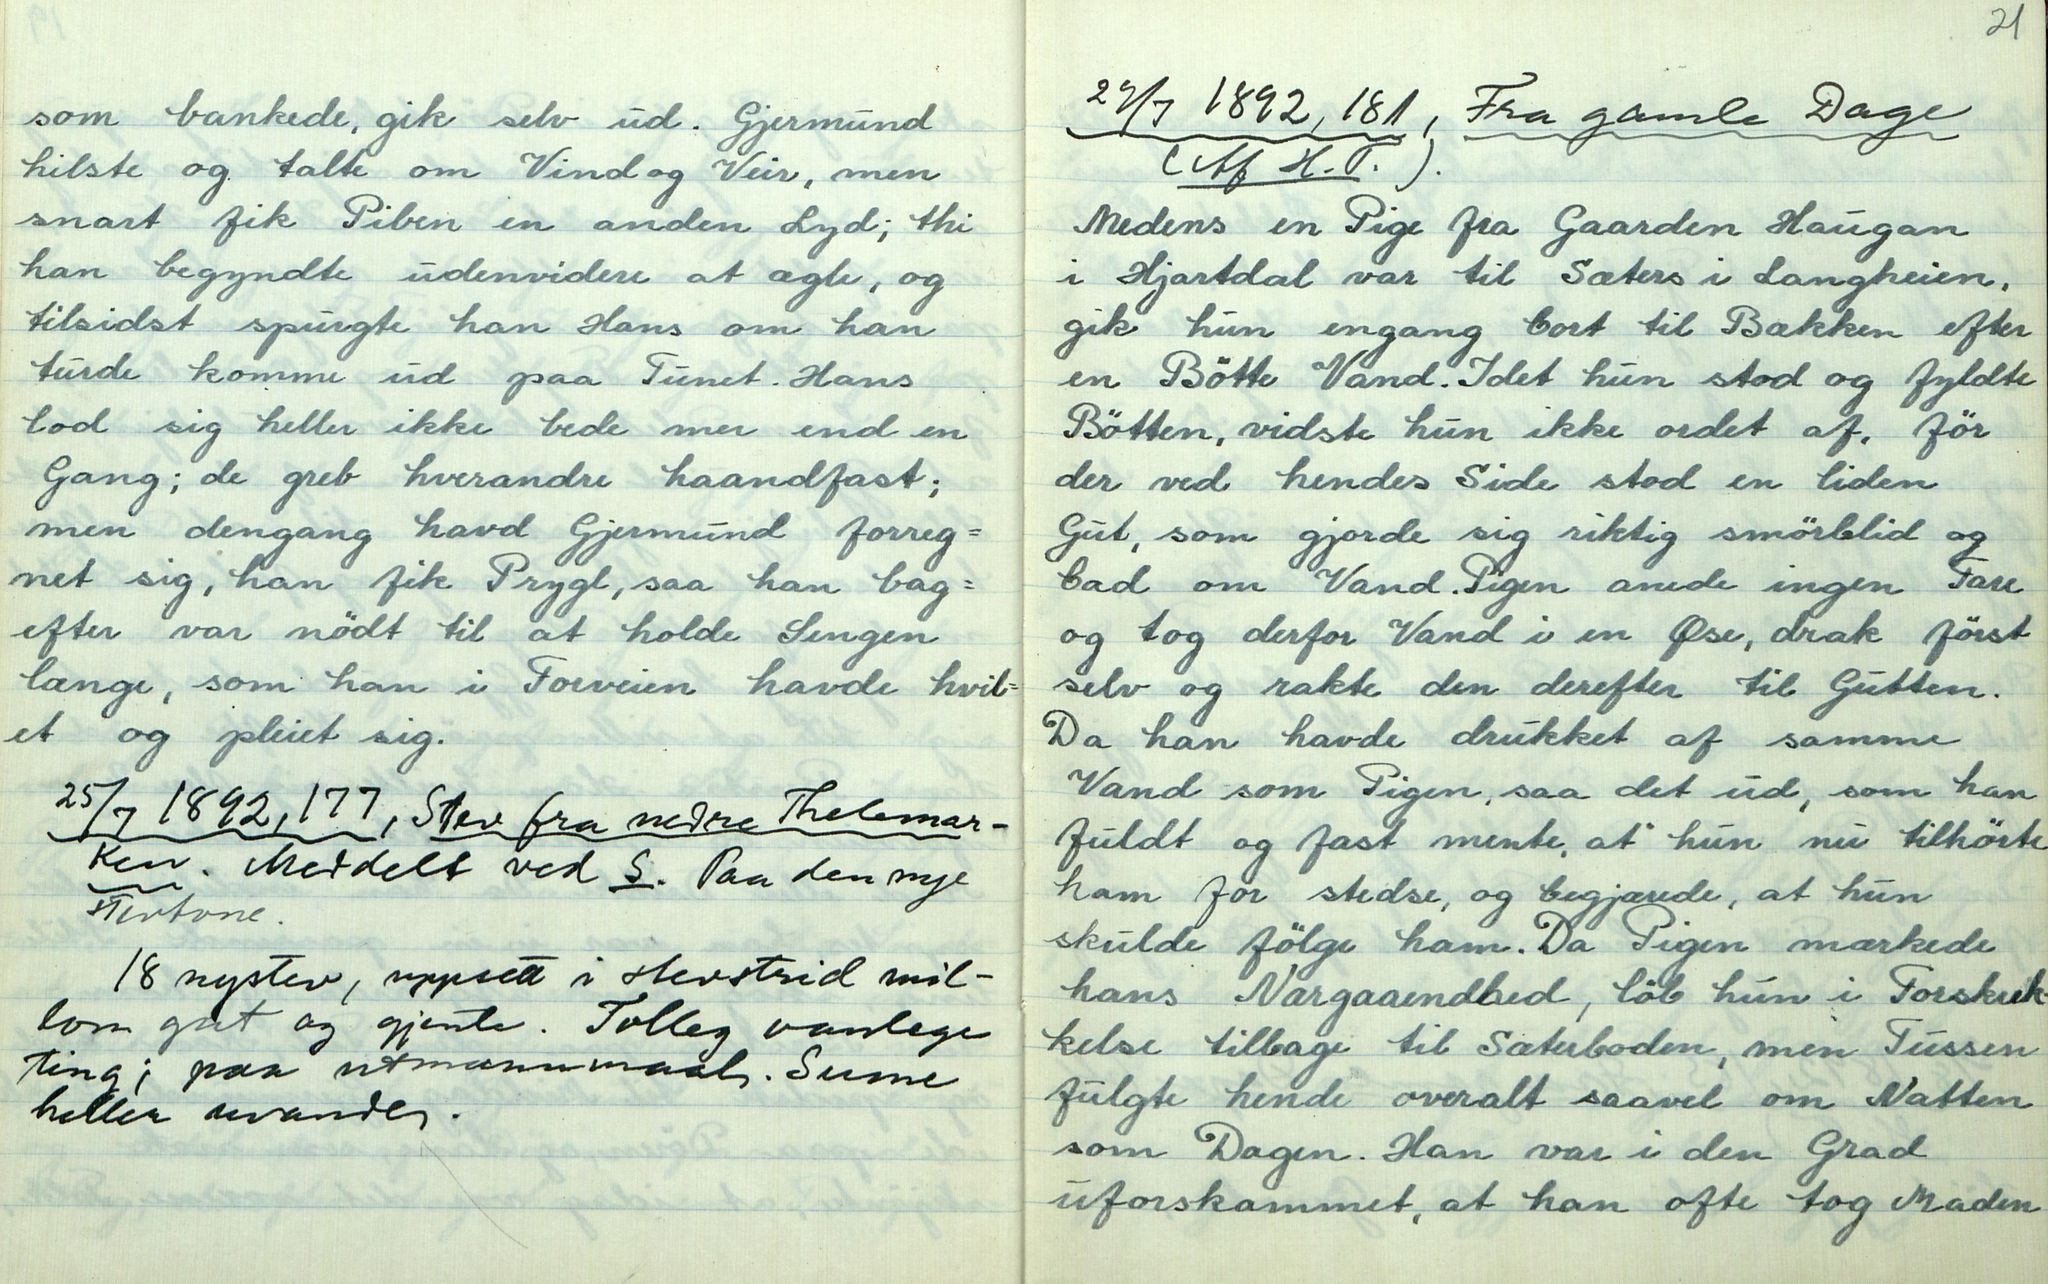 som bankede, gik selv ud. Gjermund
hilste og talte om Vind og Veir, men
snart fik Piben en anden Lyd; thi
han begyndte udenvidere at ægle, og
tilsidst spurgte han Hans om han
turde komme ud paa Tunet. Hans
lod sig heller ikke bede mer end en
Gang; de greb hverandre haandfast;
men dengang havd Gjermund forreg=
net sig, han fik Prygl, saa han bag=
efter var nödt til at holde Sengen
længe, som han i Forveien havde hvil=
et og pleiet sig.
25/7 1892, 177, Stev fra nedre Thelemar-
ken. Meddelt ved S. Paa den nye
Stevtone.
18 nystev, uppsett i Stevstrid mil-
lom gut og gjente. Tolleg vanlege
ting; paa utmannmaal. Sume
heller uvandl.
21
29/7 1892, 181, Fra gamle Dage
(Af H. T.).
Medens en Pige fra Gaarden Haugan
i Hjartdal var til Sæters i Langheien,
gik hun engang bort til Bækken efter
en Bötte Vand. Idet hun stod og fyldte
Bötten, vidste hun ikke ordet af, för
der ved hendes Side stod en liden
Gut, som gjorde sig riktig smörblid og
bad om Vand. Pigen anede ingen Fare
og tog derfor Vand i en Øse, drak först
selv og rakte den derefter til Gutten.
Da han havde drukket af samme
Vand som Pigen, saa det ud, som han
fuldt og fast mente, at hun nu tilhörte
ham for stedse, og begjærede, at hun
skulde fölge ham. Da Pigen mærkede
hans Nærgaaendhed, löb hun i Forskræk-
kelse tilbage til Sæterboden, men Tussen
fulgte hende overalt saavel om Natten
som Dagen. Han var i den Grad
uforskammet, at han ofte tog Maden